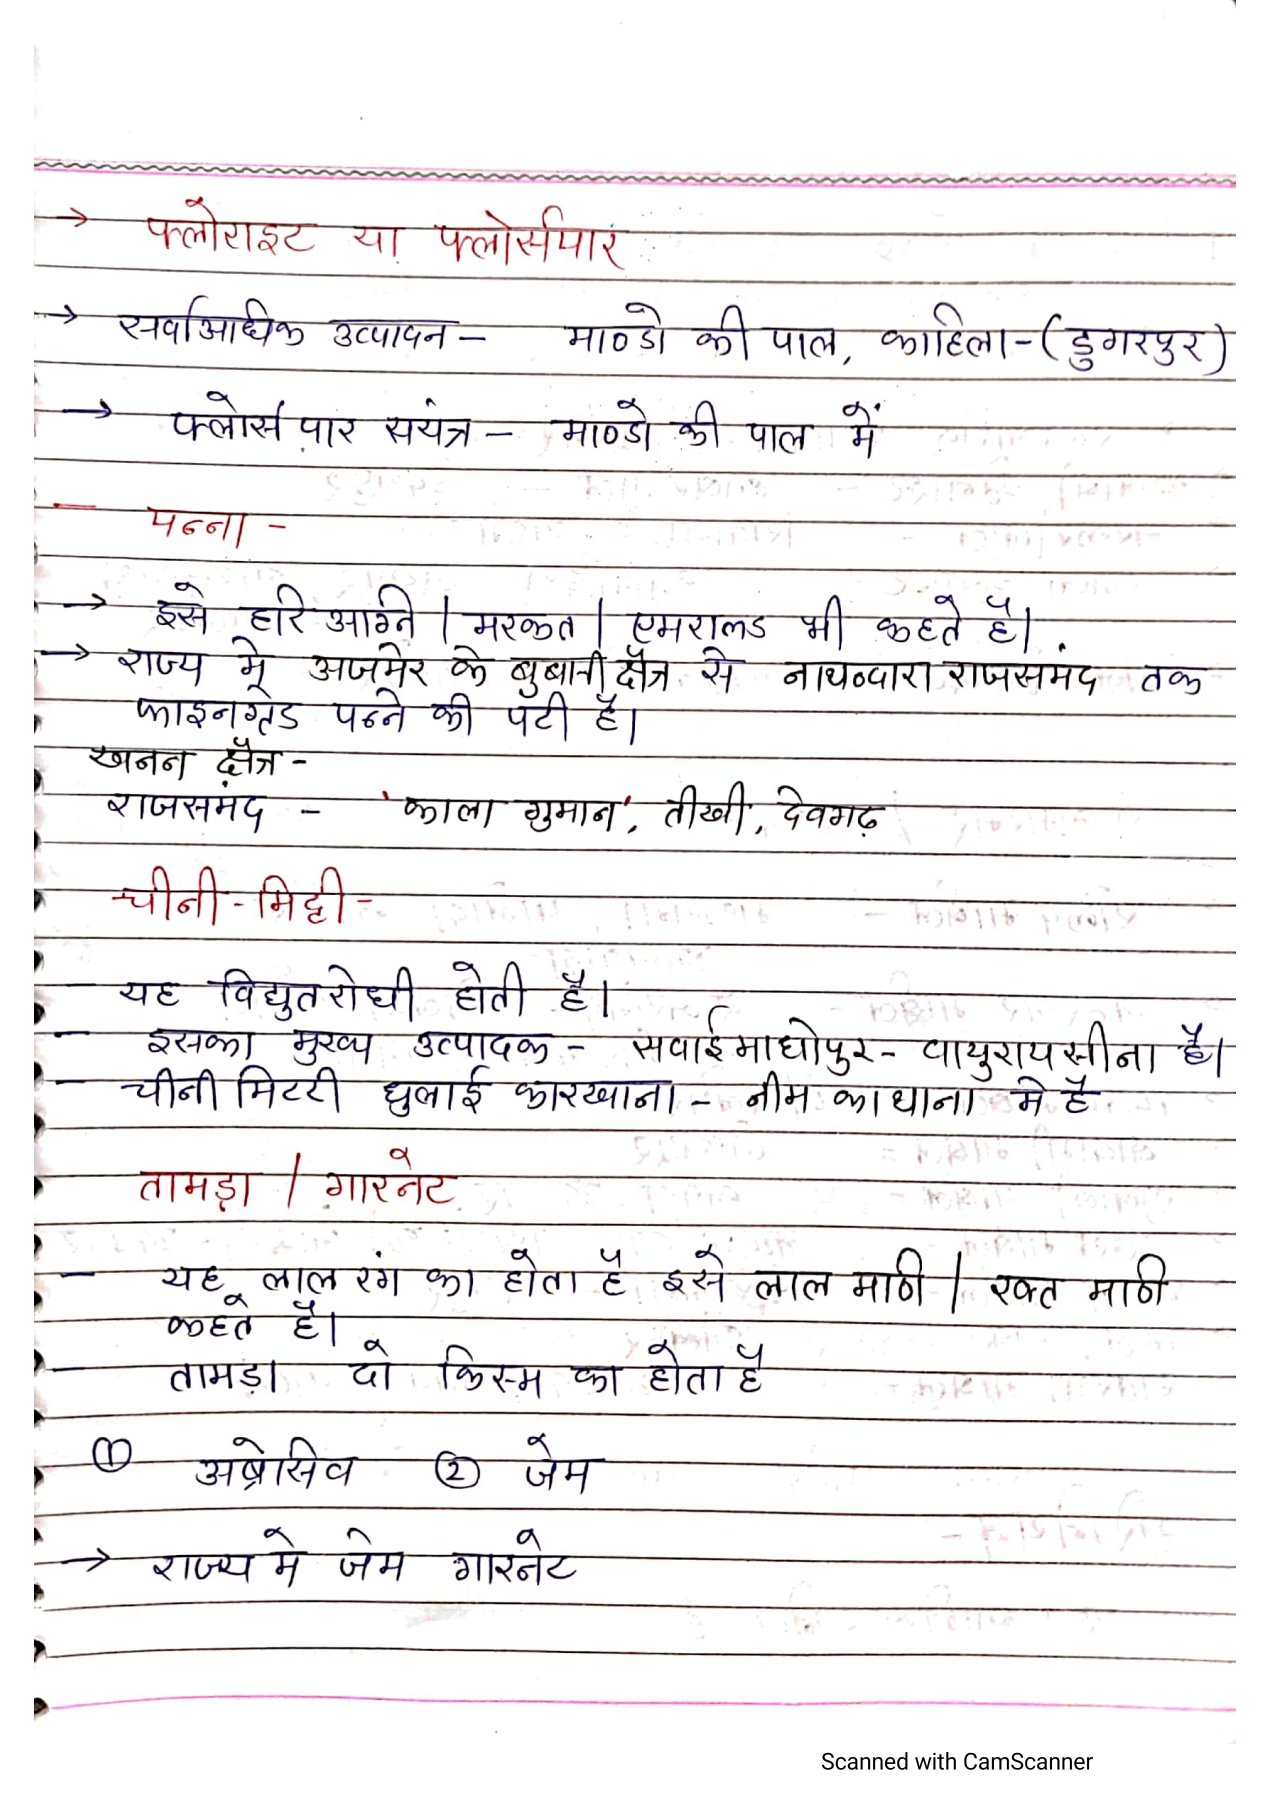 → फ्लोराइट या फ्लोर्सपार
→ सर्वाआधिक उत्पादन - माण्डो की पाल, काहिला - (डुगरपुर)
→ फ्लोर्सपार सयंत्र - माण्डो की पाल में
- पन्ना -
→ इसे हरि आग्नि / मरकत / एमरालड भी कहते है।
→ राज्य मे अजमेर के बुबानी क्षैत्र से नाथव्दारा राजसमंद तक
फाइनग्रेड पन्ने की पटी है।
खनन क्षैत्र -
राजसमंद - 'काला गुमान', तीखी, देवगढ़
चीनी - मिट्टी -
यह विद्युतरोधी होती है।
- इसका मुख्य उत्पादक - सवाईमाधोपुर - वायुरायसीना है।
- चीनी मिटटी धुलाई कारखाना - नीम का थाना मे है
तामड़ा / गारनेट
- यह लाल रंग का होता है इसे लाल माणी / रक्त माणी
कहते है।
- तामड़ा दो किस्म का होता है
① अब्रेसिव ② जेम
→ राज्य मे जेम गारनेट
Scanned with CamScanner